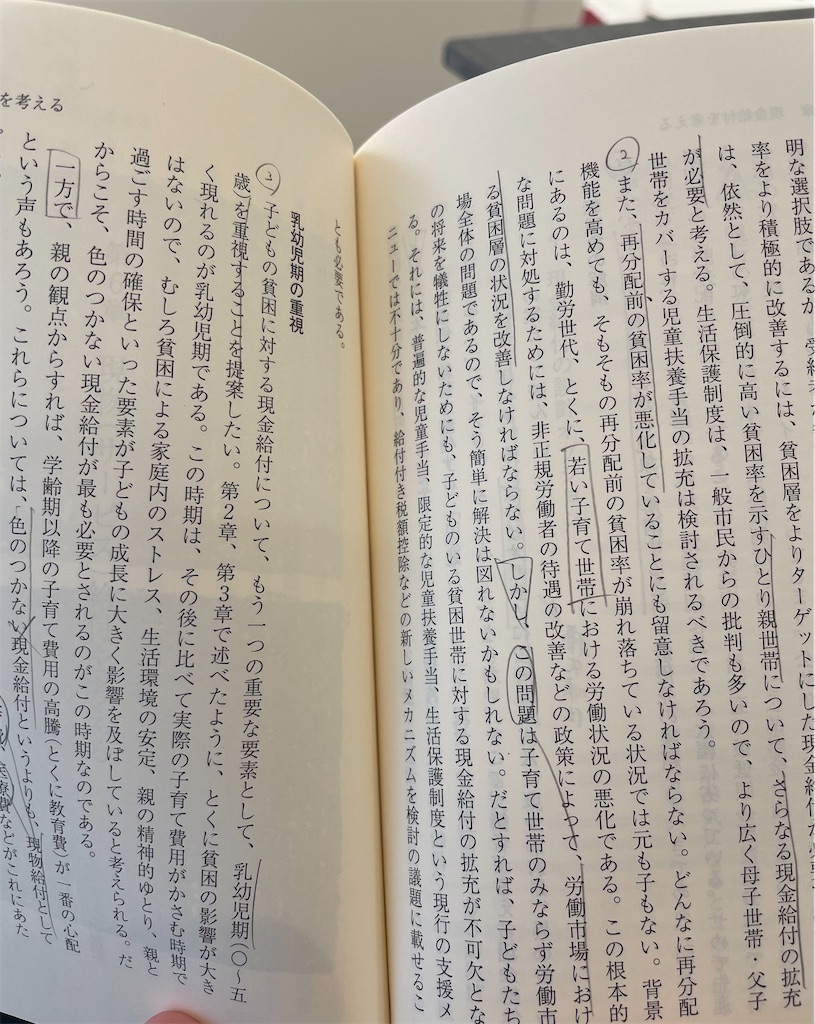 明な選択肢であるが、受給者が
率をより積極的に改善するには、貧困層をよりターゲットにした現金給付が必要
は、依然として、圧倒的に高い貧困率を示すひとり親世帯について、さらなる現金給付の拡充
が必要と考える。生活保護制度は、一般市民からの批判も多いので、より広く母子世帯・父子
世帯をカバーする児童扶養手当の拡充は検討されるべきであろう。
② また、再分配前の貧困率が悪化していることにも留意しなければならない。どんなに再分配
機能を高めても、そもそもの再分配前の貧困率が崩れ落ちている状況では元も子もない。背景
にあるのは、勤労世代、とくに、若い子育て世帯における労働状況の悪化である。この根本的
な問題に対処するためには、非正規労働者の待遇の改善などの政策によって、労働市場におけ
る貧困層の状況を改善しなければならない。しかし、この問題は子育て世帯のみならず労働市
場全体の問題であるので、そう簡単に解決は図れないかもしれない。だとすれば、子どもたち
の将来を犠牲にしないためにも、子どものいる貧困世帯に対する現金給付の拡充が不可欠とな
る。それには、普遍的な児童手当、限定的な児童扶養手当、生活保護制度という現行の支援メ
ニューでは不十分であり、給付付き税額控除などの新しいメカニズムを検討の議題に載せるこ
を考える
とも必要である。
乳幼児期の重視
③ 子どもの貧困に対する現金給付について、もう一つの重要な要素として、乳幼児期(〇〜五
歳)を重視することを提案したい。第2章、第3章で述べたように、とくに貧困の影響が大き
く現れるのが乳幼児期である。この時期は、その後に比べて実際の子育て費用がかさむ時期で
はないので、むしろ貧困による家庭内のストレス、生活環境の安定、親の精神的ゆとり、親と
過ごす時間の確保といった要素が子どもの成長に大きく影響を及ぼしていると考えられる。だ
からこそ、色のつかない現金給付が最も必要とされるのがこの時期なのである。
一方で、親の観点からすれば、学齢期以降の子育て費用の高騰(とくに教育費)が一番の心配
という声もあろう。これらについては、「色のつかない」現金給付というよりも、現物給付として